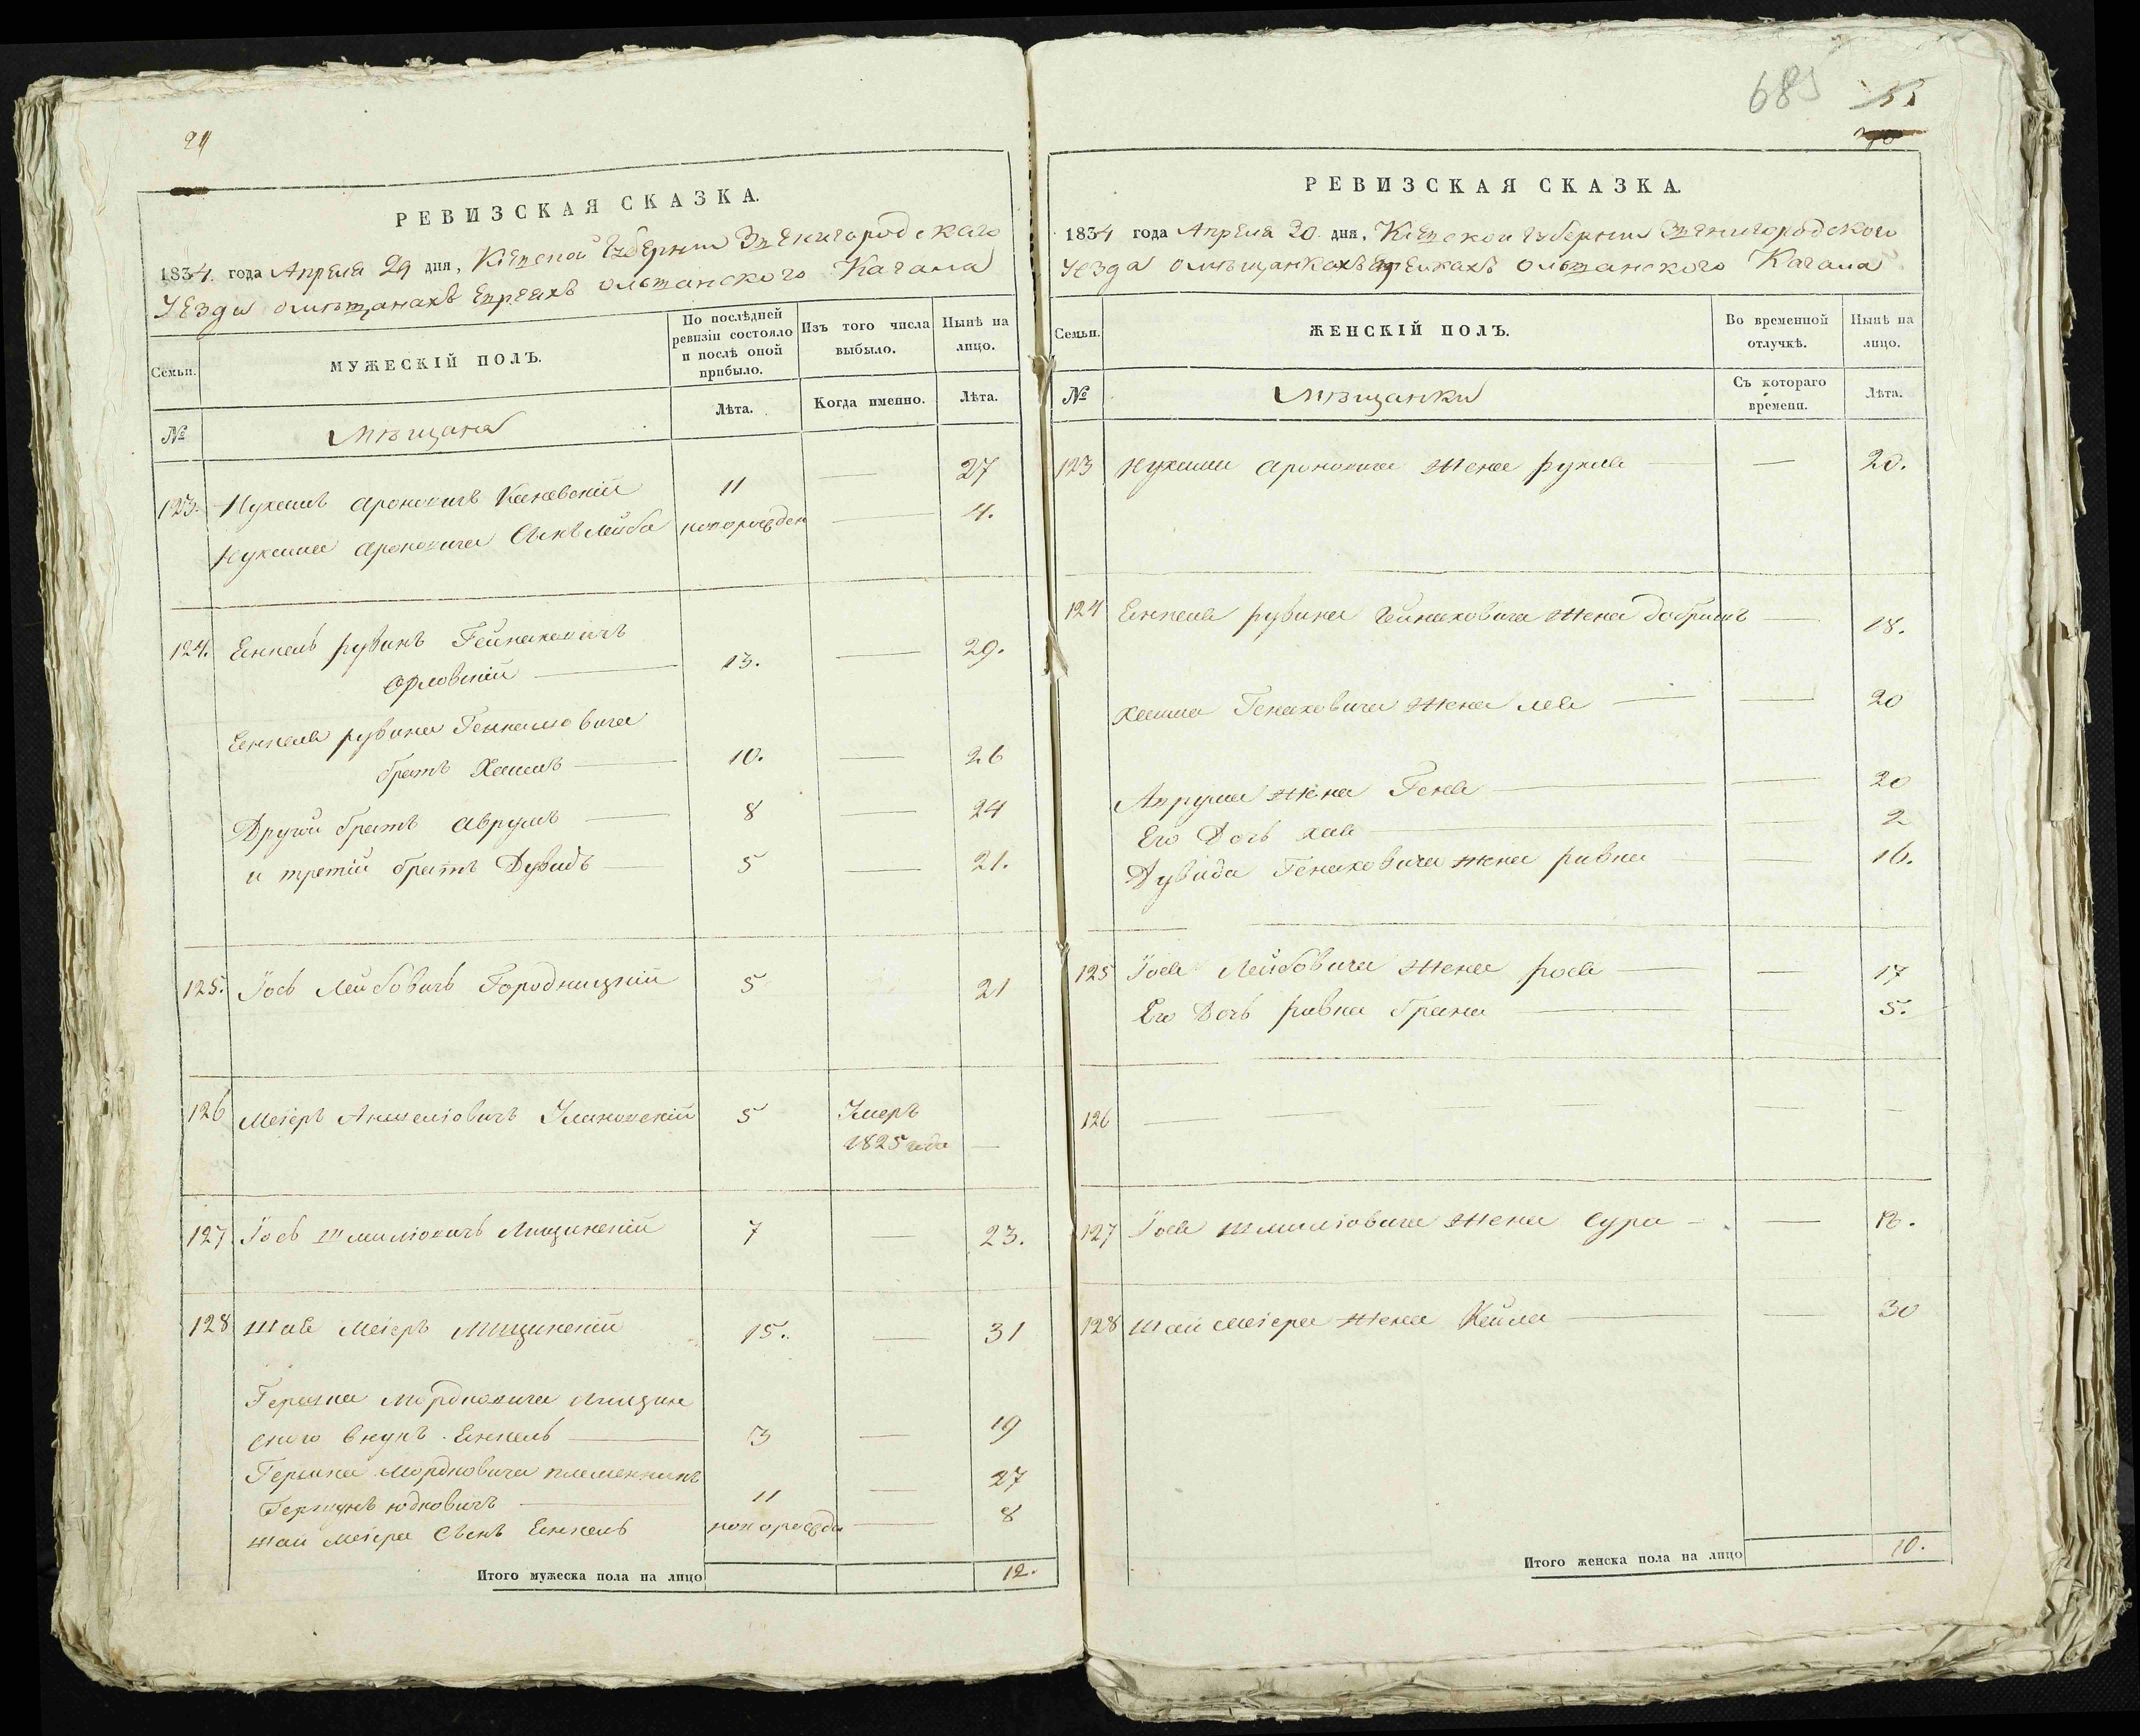 24
РЕВИЗСКАЯ СКАЗКА.
1834. года Апреля 29 дня, Кіевской Губерніи Звенигородскаго
Уезда омѣщанахъ Евреахъ олшанского Кагала
Семьи.
МУЖЕСКІЙ ПОЛЪ.
По послѣдней ревизіи состояло и послѣ оной прибыло.
Изъ того числа выбыло.
Нынѣ на лицо.
№
Мѣщана
Лѣта.
Когда именно.
Лѣта.
123. Нухимъ Ароновичъ Каневскій 11 — 27
Нухима Ароновича Сынъ Лейба новорожден — 4.
124. Еннель рувинъ Гейнаховичъ
Орловскій — 13. — 29.
Еннеля рувина
братъ Хаимъ — 10. — 26
Другой братъ Аврумъ — 8 — 24
и третій братъ Дувидъ — 5 — 21.
125. Іось Лейбовичъ Городницкій 5 21
126 Меіеръ Аншеліовичъ 5 Умеръ
1825 года —
127 Іось Шмиліовичъ Лищинскій 7 — 23.
128 Шая Меіеръ Лищинскій 15. — 31
Гершка Мордковича Лищин
ского внукъ Еннель — 3 — 19
Гершка Мордковича племенникъ
Гершунъ юдковичъ — 11 — 27
Шаи Меіера Сынъ Еннель новорожде — 8
Итого мужеска пола на лицо 12.
685
РЕВИЗСКАЯ СКАЗКА.
1834 года Апреля 30 дня, Кіевской губерніи Звенигородского
Уезда омѣщанкахъ Еврейкахъ олшанского Кагала
Семьи.
ЖЕНСКІЙ ПОЛЪ.
Во временной отлучкѣ.
Нынѣ на лицо.
№
Мѣщанки
Съ котораго времени.
Лѣта.
123 Нухима Ароновича жена рухля — — 20.
124 Еннеля рувина Гейнаховича жена добришъ — 18.
Хаима Генаховича жена лея — — 20
Аврума жена Геня — — 20
Его Дочь хая — — 2
Дувида Генаховича жена ривка — 16.
125 Іося Лейбовича жена рося — — 17
Его Дочь ривка брана — — 5.
126 — — — — —
127 Іося Шмиліовича жена Сура — — 18.
128 Шаи Меіера жена Кейла — — 30
Итого женска пола на лицо 10.